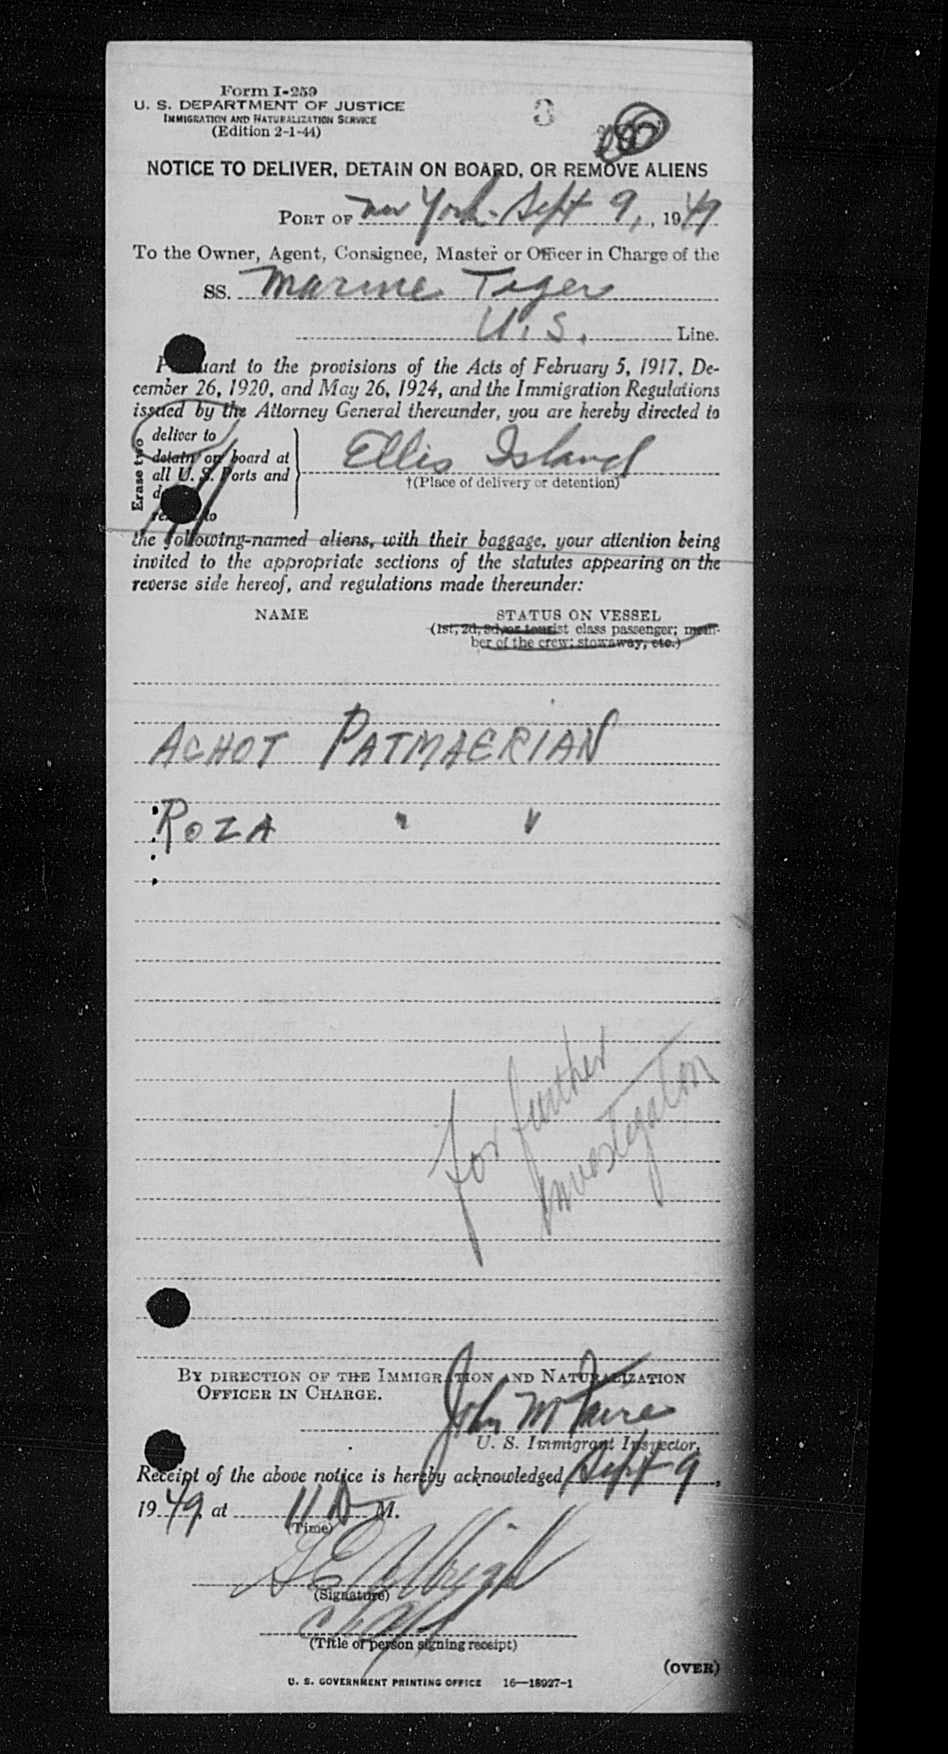 Form I-259
U. S. DEPARTMENT OF JUSTICE
IMMIGRATION AND NATURALIZATION SERVICE
(Edition 2-1-44)
3
NOTICE TO DELIVER, DETAIN ON BOARD, OR REMOVE ALIENS
PORT OF New York - Sept 9, , 1949
To the Owner, Agent, Consignee, Master or Officer in Charge of the
SS. Marine Tiger
U. S. Line.
Pursuant to the provisions of the Acts of February 5, 1917, De-
cember 26, 1920, and May 26, 1924, and the Immigration Regulations
issued by the Attorney General thereunder, you are hereby directed to
Erase two
deliver to
detain on board at
all U. S. Ports and
to
Ellis Island
†(Place of delivery or detention)
the following-named aliens, with their baggage, your attention being
invited to the appropriate sections of the statutes appearing on the
reverse side hereof, and regulations made thereunder:
NAME STATUS ON VESSEL
(1st, 2d, 3d, or tourist class passenger; mem-
ber of the crew; stowaway, etc.)
ACHOT PATMAERIAN
ROZA " "
for further
investigation
BY DIRECTION OF THE IMMIGRATION AND NATURALIZATION
OFFICER IN CHARGE.
John
U. S. Immigrant Inspector.
Receipt of the above notice is hereby acknowledged Sept 9,
1949 at 11 M.
(Time)
(Signature)
(Title of person signing receipt)
(OVER)
U. S. GOVERNMENT PRINTING OFFICE 16—18927-1